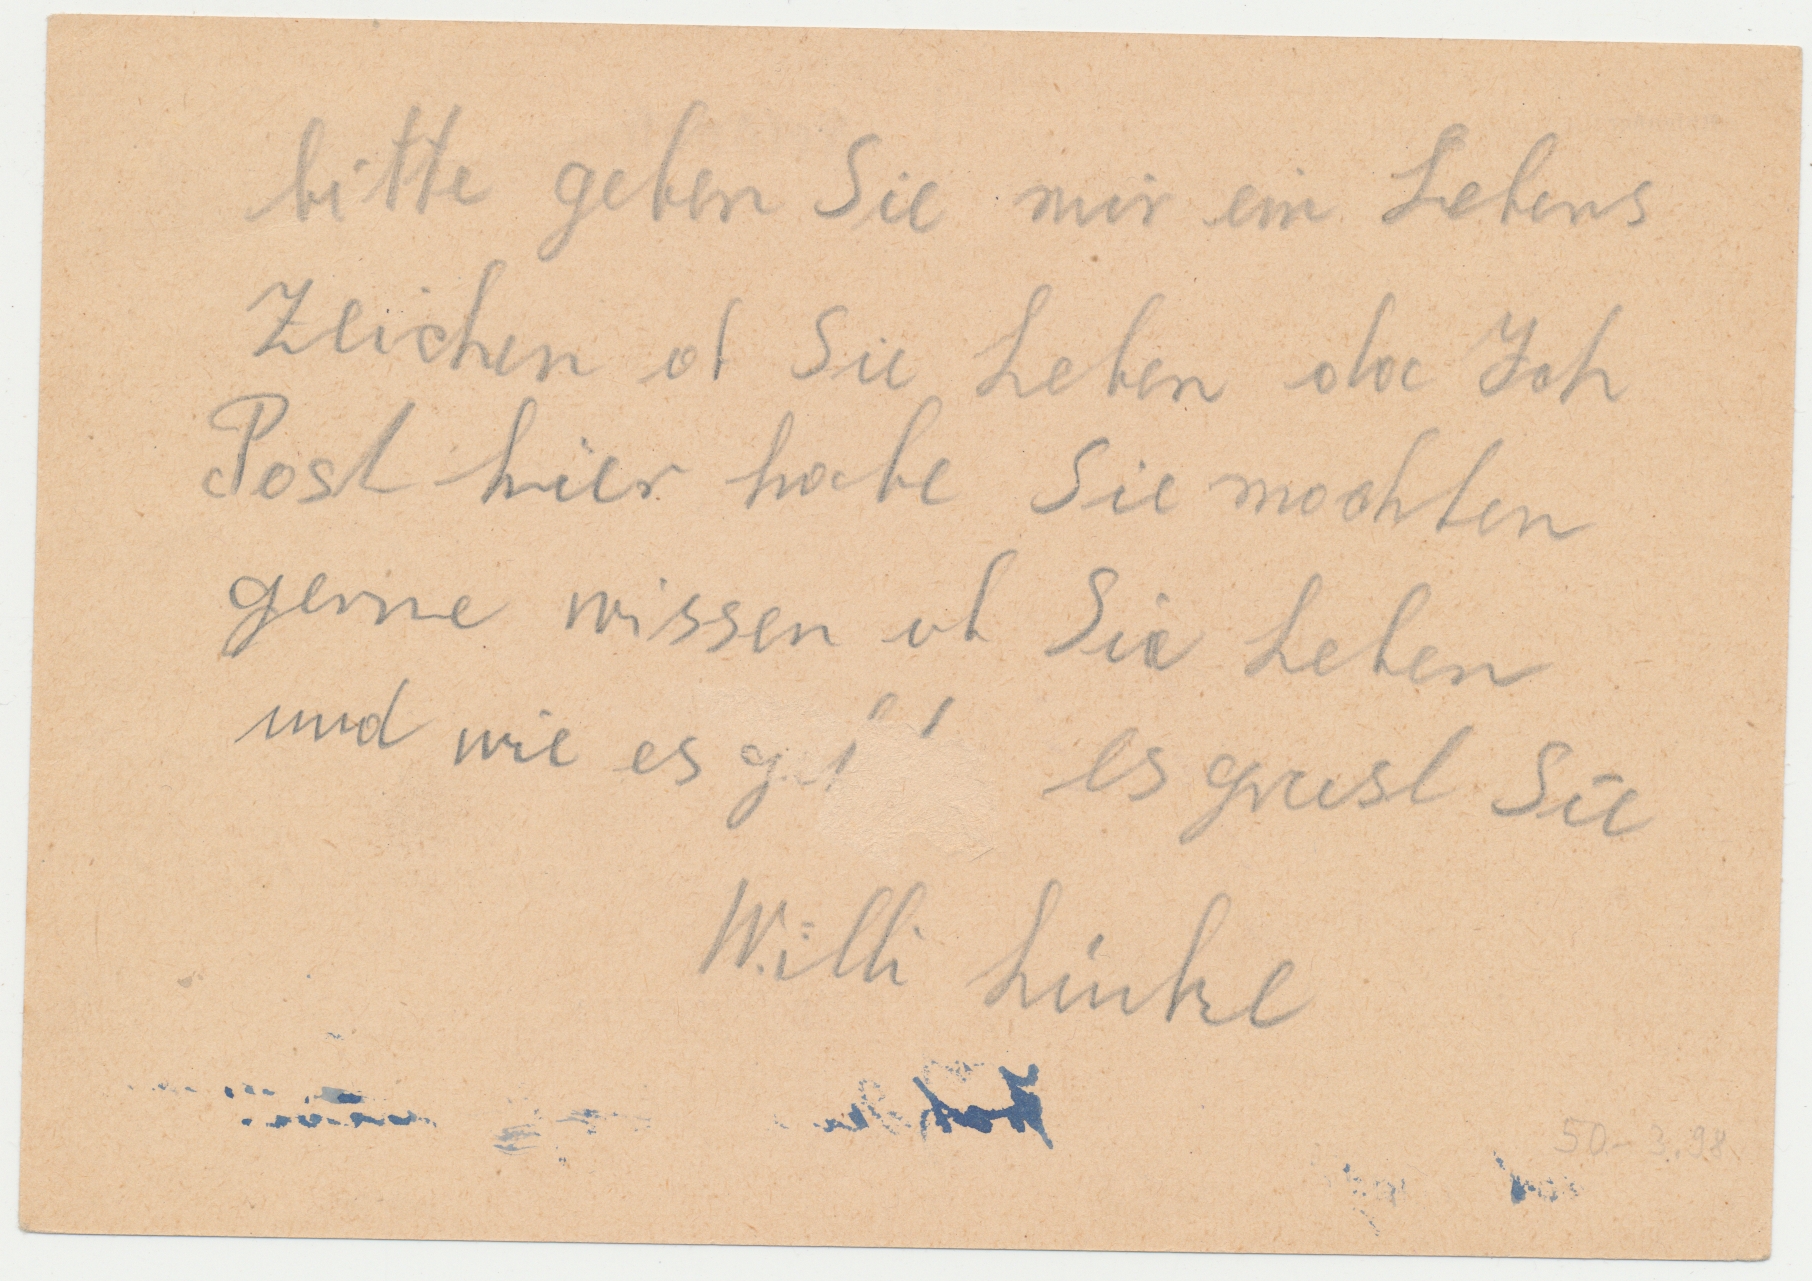 bitte geben Sie mir ein Lebens
Zeichen ob Sie Leben da Ich
Post hier habe Sie mochten
gerne wissen ob Sie Leben
und wie es es grust Sie
Willi Linke
50-3.98